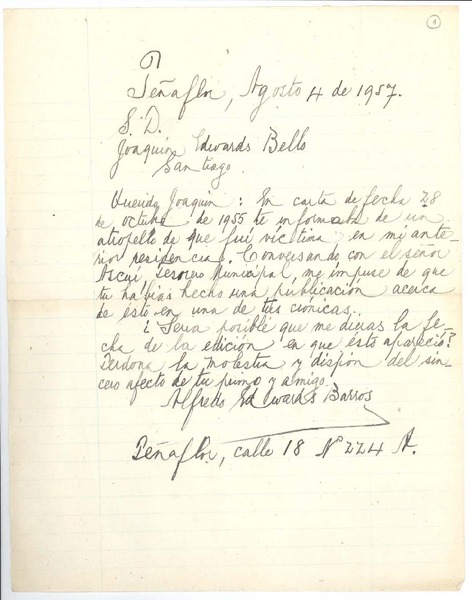 1
Peñaflor, Agosto 4 de 1957.
S. D.
Joaquin Edwards Bello
Santiago.
Querido Joaquin: En carta de fecha 28
de octubre de 1955 te informaba de un
atropello de que fui victima en mi ante-
rior residencia. Conversando con el señor
Tesorero Municipal, me impuse de que
tu habias hecho una publicación acerca
de esto en una de tus crónicas.
¿Seria posible que me digas la fe-
cha de la edición en que esto apareció?
Perdona la molestia y dispón del sin-
cero afecto de tu primo y amigo.
Alfredo Edwards Barros
Peñaflor, calle 18 Nº 224 A.